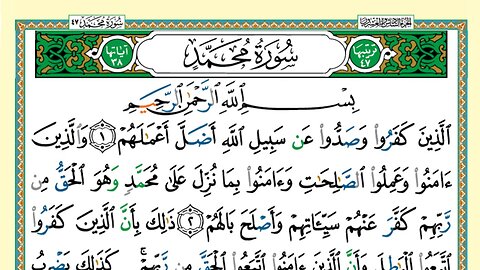 سُورَةُ مُحَمَّد ٤٧
الجزء السادس والعشرون
آياتها ٣٨
سُورَةُ مُحَمَّدٍ
ترتيبها ٤٧
بِسْمِ ٱللَّهِ ٱلرَّحْمَٰنِ ٱلرَّحِيمِ
ٱلَّذِينَ كَفَرُوا۟ وَصَدُّوا۟ عَن سَبِيلِ ٱللَّهِ أَضَلَّ أَعْمَٰلَهُمْ ۝١ وَٱلَّذِينَ
ءَامَنُوا۟ وَعَمِلُوا۟ ٱلصَّٰلِحَٰتِ وَءَامَنُوا۟ بِمَا نُزِّلَ عَلَىٰ مُحَمَّدٍ وَهُوَ ٱلْحَقُّ مِن
رَّبِّهِمْ كَفَّرَ عَنْهُمْ سَيِّـَٔاتِهِمْ وَأَصْلَحَ بَالَهُمْ ۝٢ ذَٰلِكَ بِأَنَّ ٱلَّذِينَ كَفَرُوا۟
ٱتَّبَعُوا۟ ٱلْبَٰطِلَ وَأَنَّ ٱلَّذِينَ ءَامَنُوا۟ ٱتَّبَعُوا۟ ٱلْحَقَّ مِن رَّبِّهِمْ ۚ كَذَٰلِكَ يَضْرِبُ